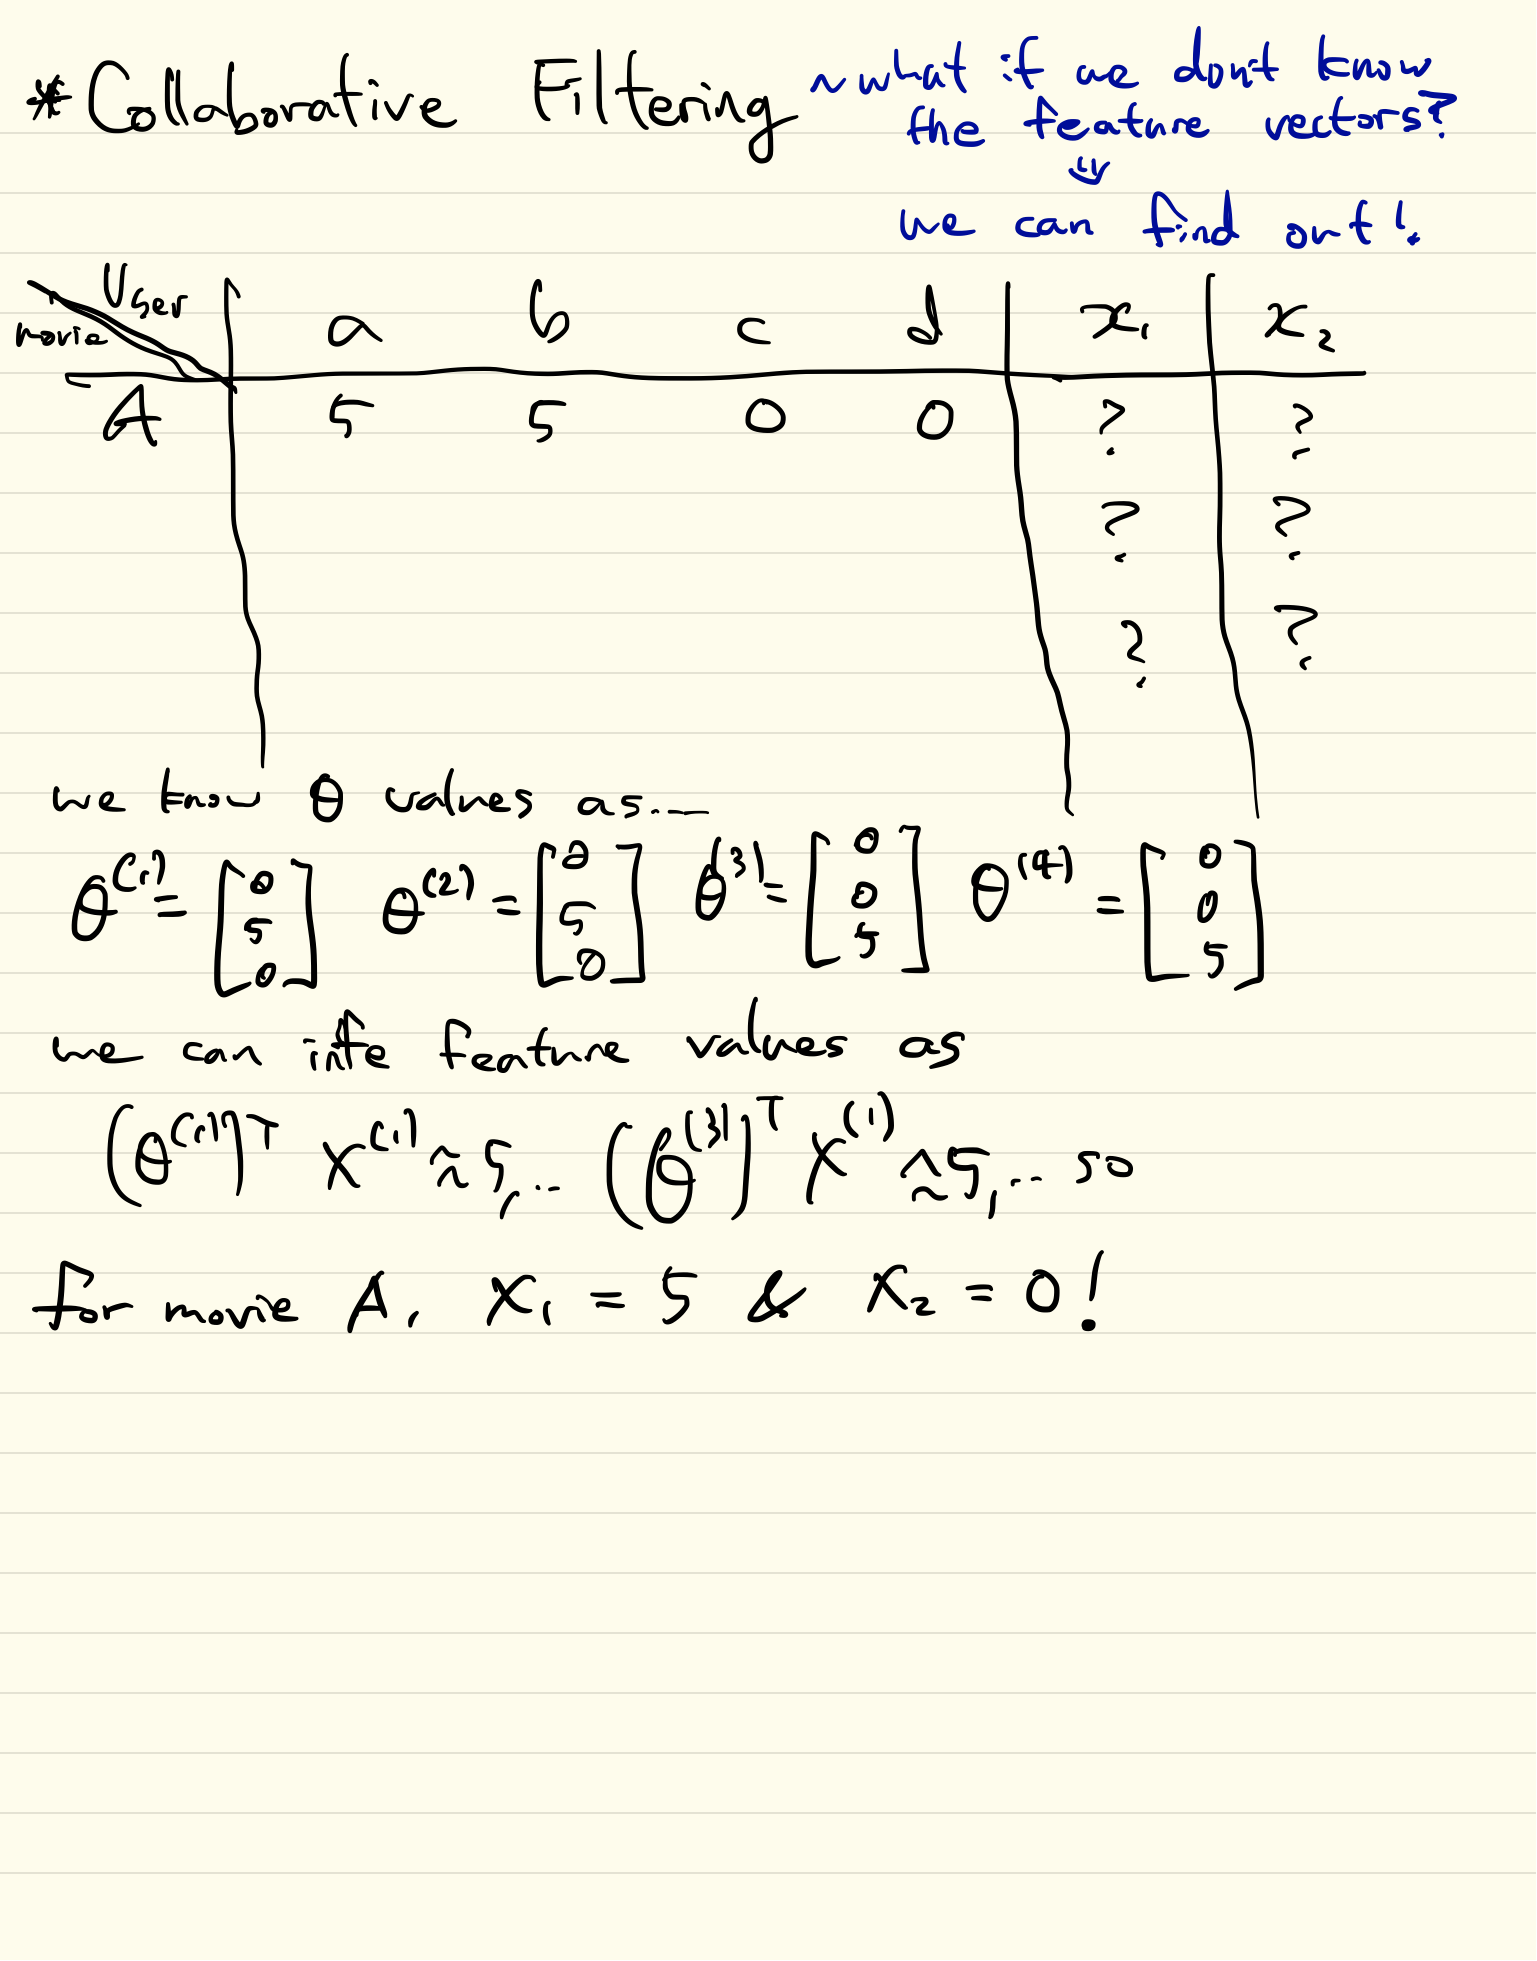 * Collaborative Filtering
~ what if we dont know
the feature vectors?
⇓
we can find out!
User
movie
a b c d x₁ x₂
A 5 5 0 0 ? ?
? ?
? ?
we know θ values as...
θ⁽¹⁾ = [0 5 0] θ⁽²⁾ = [0 5 0] θ⁽³⁾ = [0 0 5] θ⁽⁴⁾ = [0 0 5]
we can infe feature values as
(θ⁽¹⁾)ᵀ x⁽¹⁾ ≈ 5, ... (θ⁽³⁾)ᵀ x⁽¹⁾ ≈ 5, ... so
for movie A, x₁ = 5 & x₂ = 0!